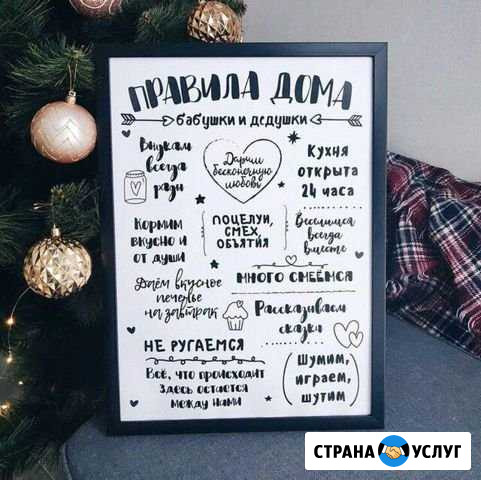 ПРАВИЛА ДОМА
бабушки и дедушки
Внукам
всегда
рады
Дарим
бесконечную
любовь
КУХНЯ
ОТКРЫТА
24 ЧАСА
Кормим
вкусно и
от души
ПОЦЕЛУИ,
СМЕХ,
ОБЪЯТИЯ
Веселимся
всегда
вместе
Даём вкусное
печенье
на завтрак
МНОГО СМЕЁМСЯ
Рассказываем
сказки
НЕ РУГАЕМСЯ
Всё, что происходит
Здесь остается
между нами
ШУМИМ,
играем,
шутим
СТРАНА УСЛУГ